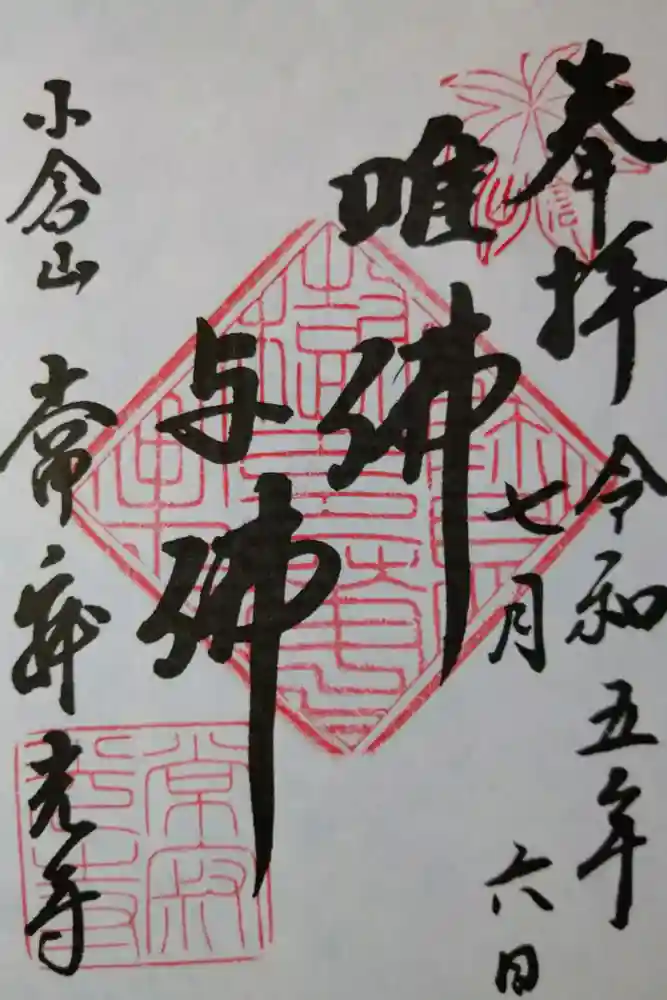 奉拝
令和五年
七月
六日
唯佛
与佛
小倉山
常寂光寺
常寂
光寺